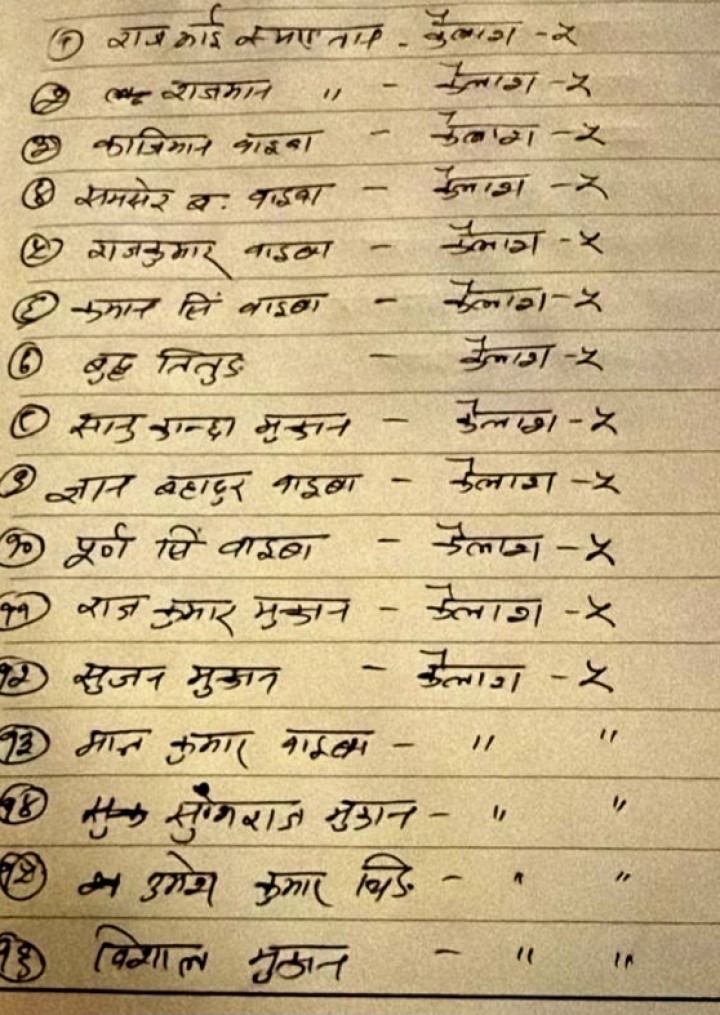 (१) राज भाई - कैलाश - ५
(२) राजमान " - कैलाश - ५
(३) काजिमान वाइबा - कैलाश - ५
(४) समसेर ब. वाइबा - कैलाश - ५
(५) राजकुमार वाइबा - कैलाश - ५
(६) कमान सिं वाइबा - कैलाश - ५
(७) बुद्ध तितुङ - कैलाश - ५
(८) सानु कान्छा मुक्तान - कैलाश - ५
(९) ज्ञान बहादुर वाइबा - कैलाश - ५
(१०) पूर्ण सिं वाइबा - कैलाश - ५
(११) राज कुमार मुक्तान - कैलाश - ५
(१२) सुजन मुक्तान - कैलाश - ५
(१३) मान कुमार वाइबा - " "
(१४) मुक्तान - " "
(१५) उमेश कुमार थिङ - " "
(१६) विशाल मुक्तान - " "